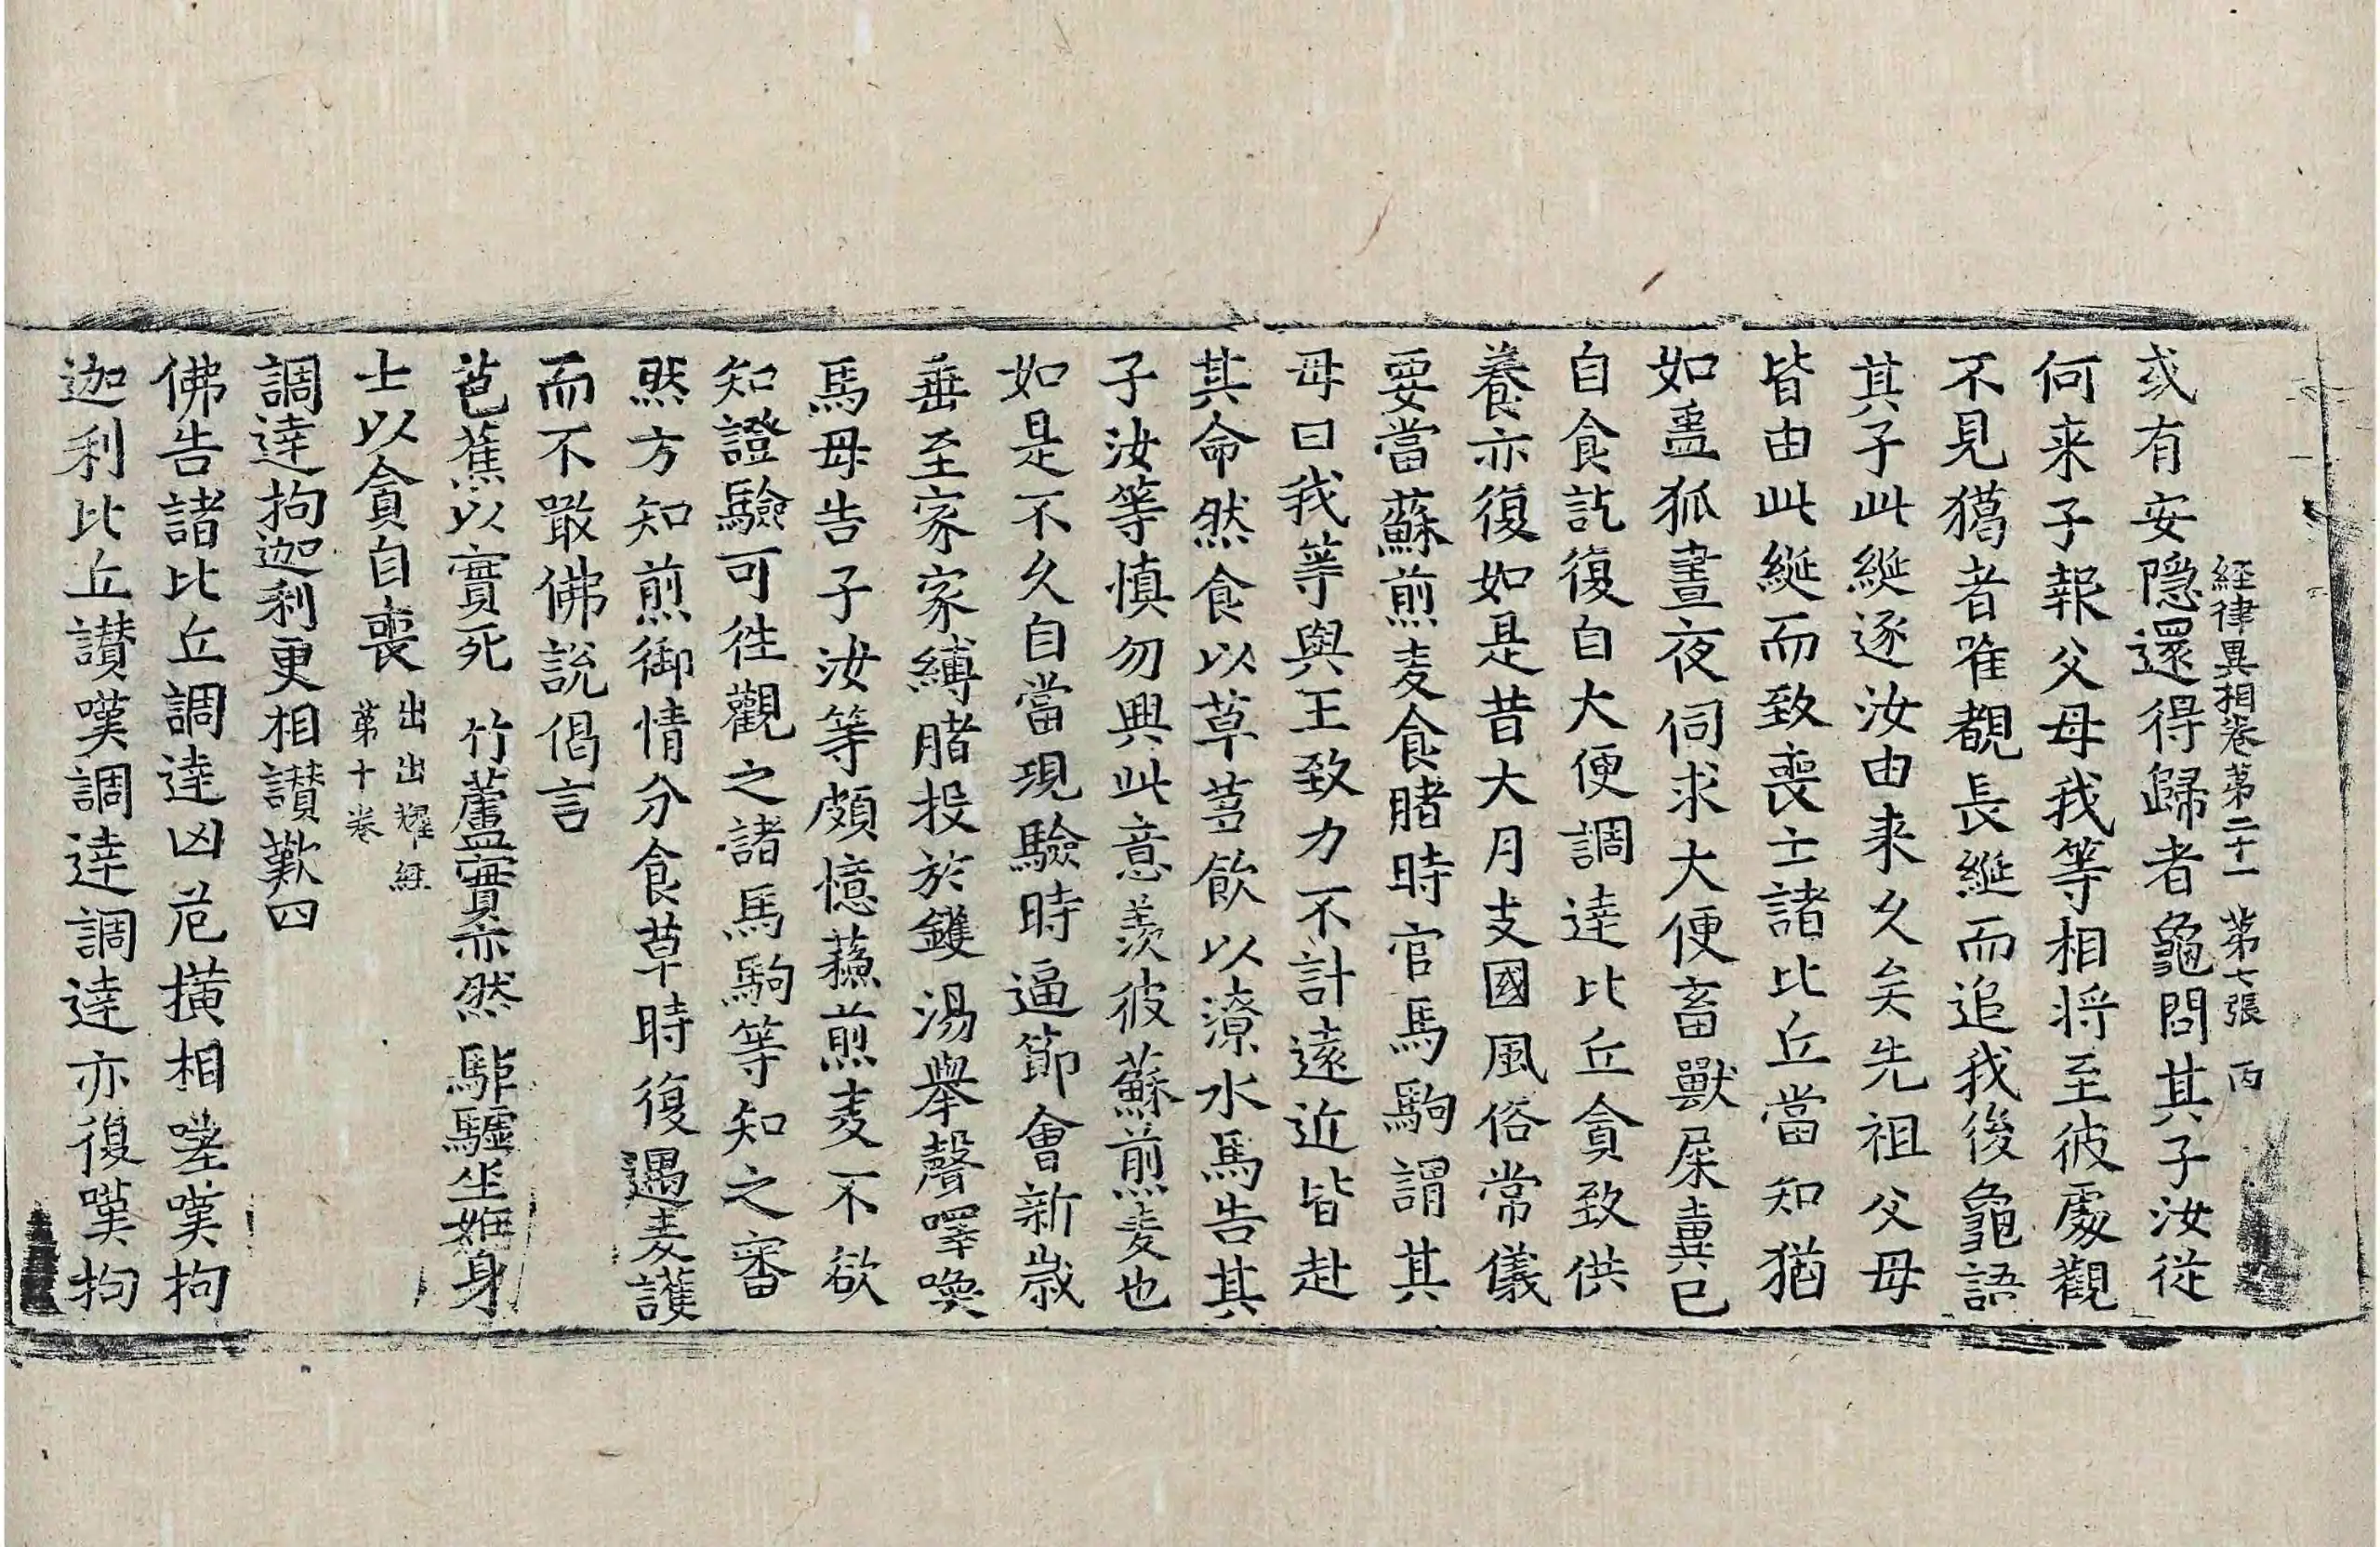 経律異相卷第二十一 第七張 丙
或有安隱還得歸者龜問其子汝從
何来子報父母我等相將至彼處觀
不見獦者唯覩長綖而追我後龜語
其子此綖逐汝由来久矣先祖父母
皆由此綖而致喪亡諸比丘當知猶
如蠱狐晝夜伺求大便畜獸屎糞已
自食訖復自大便調達比丘貪致供
養亦復如是昔大月支國風俗常儀
要當蘇煎麦食賭時官馬駒謂其
母曰我等與王致力不計遠近皆赴
其命然食以草芻飲以潦水馬告其
子汝等慎勿興此意羡彼蘇煎麦也
如是不久自當現驗時逼節會新歲
垂至家家縛賭投於鑊湯舉聲嘷喚
馬母告子汝等頗憶蘓煎麦不欲
知證驗可徃觀之諸馬駒等知之審
然方知煎御情分食草時復遇麦護
而不噉佛說偈言
芭蕉以實死 竹蘆實亦然 駏驉坐妊身
士以貪自喪 出出耀経
第十卷
調達拘迦利更相讃歎四
佛告諸比丘調達凶危橫相嗟嘆拘
迦利比丘讃嘆調達調達亦復嘆拘